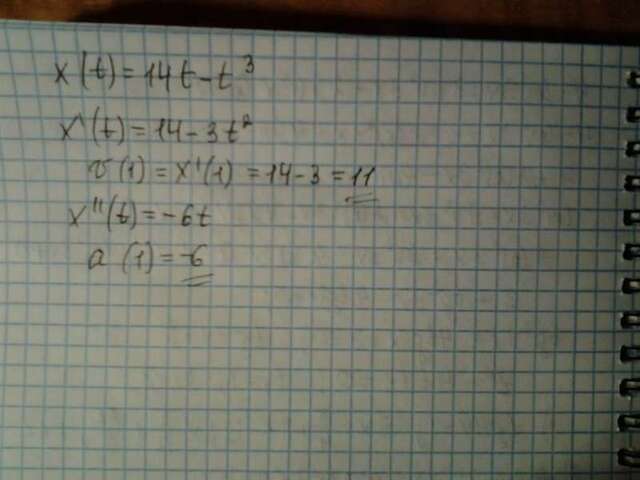 x(t)=14t-t³
x'(t)=14-3t²
v(1)=x'(1)=14-3=11
x''(t)=-6t
a(1)=-6